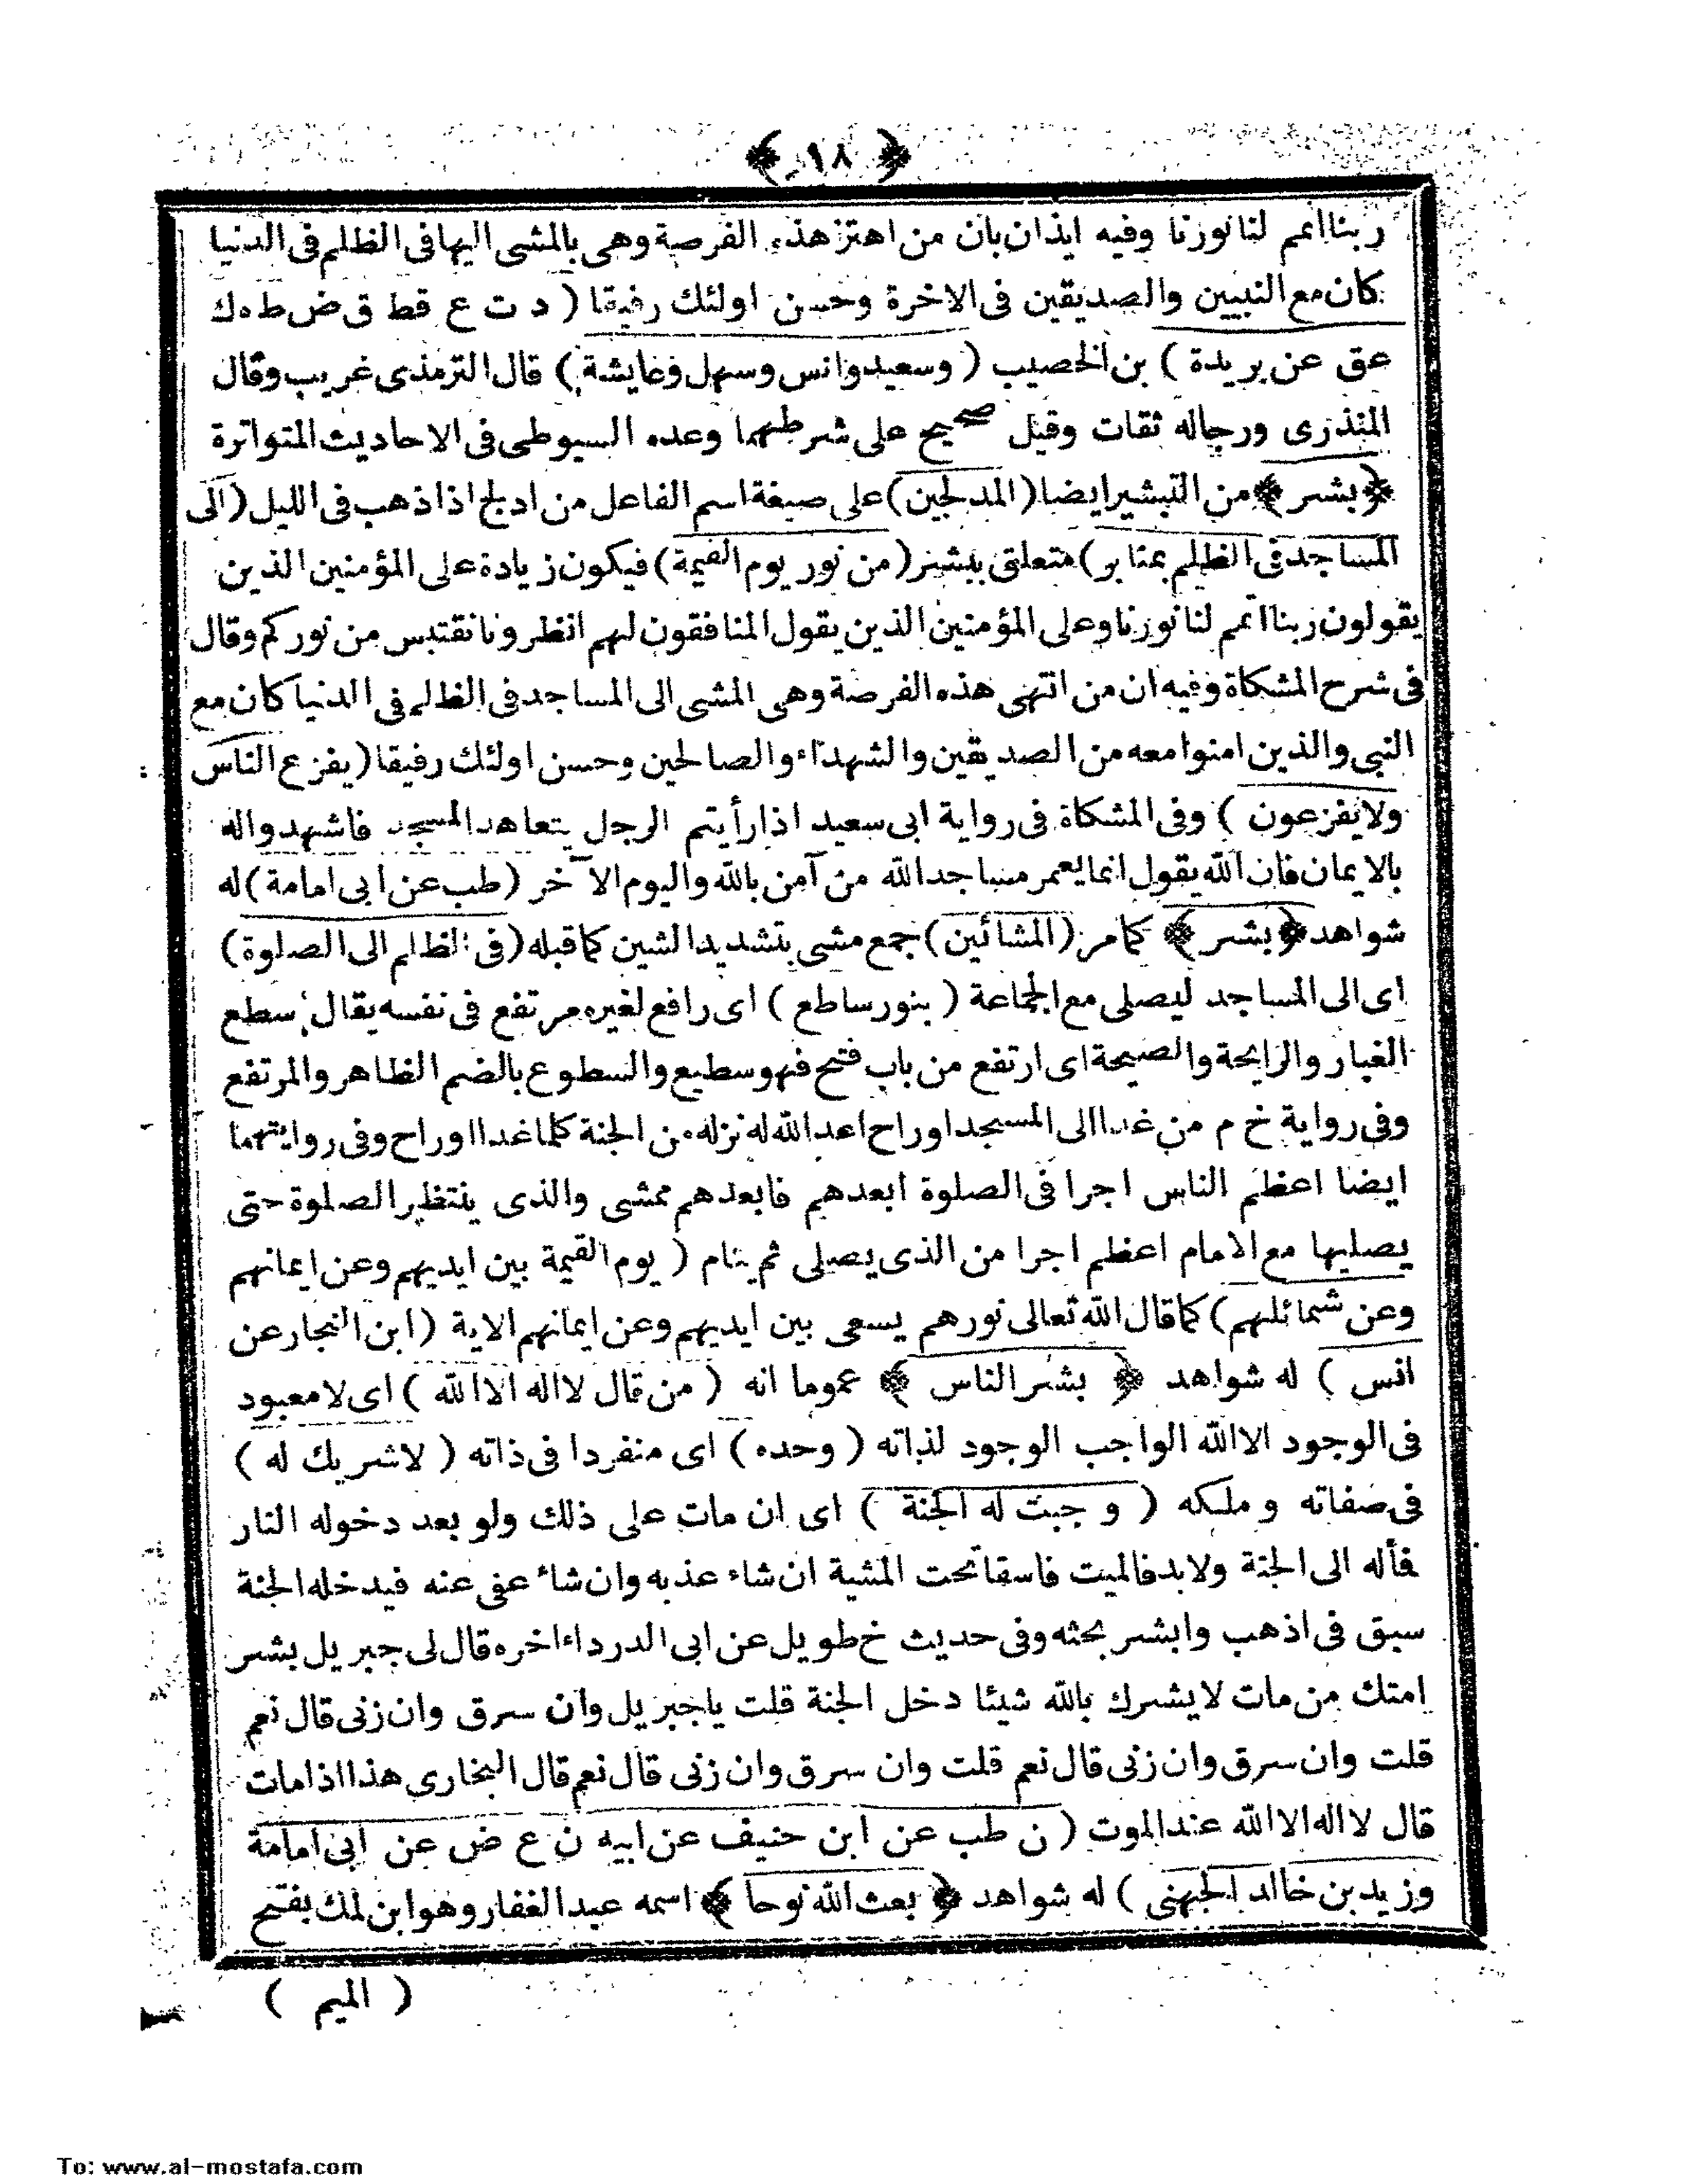 ﴿ ١٨ ﴾
ربنا اتمم لنا نورنا وفيه ايذان بان من اهتز هذه الفرصة وهى بالمشى اليها فى الظلم فى الدنيا
كان مع النبيين والصديقين فى الاخرة وحسن اولئك رفيقا ( د ت ع قط ق ض ط ه ك
عق عن بريدة ) بن الخصيب ( وسعيد وانس وسهل وعايشة ) قال الترمذى غريب وقال
المنذرى ورجاله ثقات وقيل صحيح على شرطهما وعده السيوطى فى الاحاديث المتواترة
﴿ بشر ﴾ من التبشير ايضا ( المدلجين ) على صيغة اسم الفاعل من ادلج اذا ذهب فى الليل ( الى
المساجد فى الظلم بمنابر ) متعلق ببشر ( من نور يوم القيمة ) فيكون زيادة على المؤمنين الذين
يقولون ربنا اتمم لنا نورنا وعلى المؤمنين الذين يقول المنافقون لهم انظرونا نقتبس من نوركم وقال
فى شرح المشكاة وفيه ان من انتهى هذه الفرصة وهى المشى الى المساجد فى الظلم فى الدنيا كان مع
النبى والذين امنوا معه من الصديقين والشهداء والصالحين وحسن اولئك رفيقا ( يفزع الناس
ولا يفزعون ) وفى المشكاة فى رواية ابى سعيد اذا رأيتم الرجل يتعاهد المسجد فاشهدوا له
بالايمان فان الله يقول انما يعمر مساجد الله من آمن بالله واليوم الآخر ( طب عن ابى امامة ) له
شواهد ﴿ بشر ﴾ كما مر ( المشائين ) جمع مشى بتشديد الشين كما قبله ( فى الظلم الى الصلوة )
اى الى المساجد ليصلى مع الجماعة ( بنور ساطع ) اى رافع لغيره مرتفع فى نفسه يقال سطع
الغبار والرايحة والصيحة اى ارتفع من باب فتح فهو سطيع والسطوع بالضم الظاهر والمرتفع
وفى رواية خ م من غدا الى المسجد او راح اعد الله له نزله من الجنة كلما غدا او راح وفى روايتهما
ايضا اعظم الناس اجرا فى الصلوة ابعدهم فابعدهم ممشى والذى ينتظر الصلوة حتى
يصليها مع الامام اعظم اجرا من الذى يصلى ثم ينام ( يوم القيمة بين ايديهم وعن ايمانهم
وعن شمائلهم ) كما قال الله تعالى نورهم يسعى بين ايديهم وعن ايمانهم الاية ( ابن النجار عن
انس ) له شواهد ﴿ بشر الناس ﴾ عموما انه ( من قال لا اله الا الله ) اى لا معبود
فى الوجود الا الله الواجب الوجود لذاته ( وحده ) اى منفردا فى ذاته ( لا شريك له )
فى صفاته وملكه ( وجبت له الجنة ) اى ان مات على ذلك ولو بعد دخوله النار
فأله الى الجنة ولا بد فالميت فاسقا تحت المشية ان شاء عذبه وان شاء عفى عنه فيدخله الجنة
سبق فى اذهب وابشر بحثه وفى حديث خ طويل عن ابى الدرداء اخره قال لى جبريل بشر
امتك من مات لا يشرك بالله شيئا دخل الجنة قلت يا جبريل وان سرق وان زنى قال نعم
قلت وان سرق وان زنى قال نعم قلت وان سرق وان زنى قال نعم قال البخارى هذا اذا مات
قال لا اله الا الله عند الموت ( ن طب عن ابن حنيف عن ابيه ن ع ض عن ابى امامة
وزيد بن خالد الجهنى ) له شواهد ﴿ بعث الله نوحا ﴾ اسمه عبد الغفار وهو ابن لمك بفتح
( الميم )
To: www.al-mostafa.com